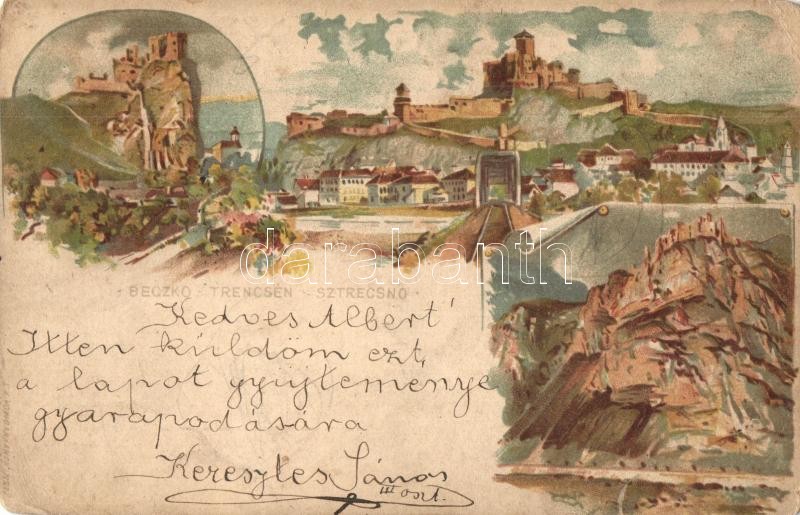 BECZKO - TRENCSÉN - SZTRECSNO
Kedves Albert!
Itten küldöm ezt
a lapot gyüjteménye
gyarapodására
Keresztes János
III oszt.
darabanth